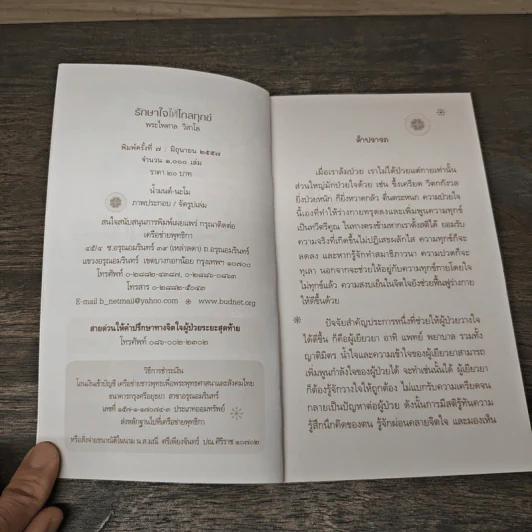 รักษาใจให้ไกลทุกข์
พระไพศาล วิสาโล
พิมพ์ครั้งที่ ๗ : มิถุนายน ๒๕๕๗
จำนวน ๑,๐๐๐ เล่ม
ราคา ๒๐ บาท
น้ำมนต์-นะโม
ภาพประกอบ / จัดรูปเล่ม
สนใจสนับสนุนการพิมพ์เผยแพร่ กรุณาติดต่อ
เครือข่ายพุทธิกา
๔๕๔ ซ.อรุณอมรินทร์ ๓๙ (เหล่าลดา) ถ.อรุณอมรินทร์
แขวงอรุณอมรินทร์ เขตบางกอกน้อย กรุงเทพฯ ๑๐๗๐๐
โทรศัพท์ ๐-๒๘๘๒-๔๓๘๗, ๐-๒๘๘๖-๐๘๖๓
โทรสาร ๐-๒๘๘๒-๕๐๔๓
E-mail b_netmail@yahoo.com www.budnet.org
สายด่วนให้คำปรึกษาทางจิตใจผู้ป่วยระยะสุดท้าย
โทรศัพท์ ๐๘๖-๐๐๒-๒๓๐๒
วิธีการชำระเงิน
โอนเงินเข้าบัญชี เครือข่ายชาวพุทธเพื่อพระพุทธศาสนาและสังคมไทย
ธนาคารกรุงศรีอยุธยา สาขาอรุณอมรินทร์
เลขที่ ๑๕๗-๑-๑๗๐๗๔-๓ ประเภทออมทรัพย์
ส่งหลักฐานไปที่เครือข่ายพุทธิกา
หรือสั่งจ่ายธนาณัติในนาม น.ส.มณี ศรีเพียงจันทร์ ปณ.ศิริราช ๑๐๗๐๒
คำปรารภ
เมื่อเราล้มป่วย เราไม่ได้ป่วยแต่กายเท่านั้น
ส่วนใหญ่มักป่วยใจด้วย เช่น ซึ้งเครียด วิตกกังวล
ยิ่งป่วยหนัก ก็ยิ่งหวาดกลัว ตื่นตระหนก ความป่วยใจ
นี้เองที่ทำให้ร่างกายทรุดลงและเพิ่มพูนความทุกข์
เป็นทวีตรีคูณ ในทางตรงข้ามหากเราตั้งสติได้ ยอมรับ
ความจริงที่เกิดขึ้นไม่ปฏิเสธผลักไส ความทุกข์ก็จะ
ลดลง และหากรู้จักทำสมาธิภาวนา ความปวดก็จะ
ทุเลา นอกจากจะช่วยให้อยู่กับความทุกข์กายโดยใจ
ไม่ทุกข์แล้ว ความสงบเย็นในจิตใจยังช่วยฟื้นฟูร่างกาย
ให้ดีขึ้นด้วย
ปัจจัยสำคัญประการหนึ่งที่ช่วยให้ผู้ป่วยวางใจ
ได้ดีขึ้น ก็คือผู้เยียวยา อาทิ แพทย์ พยาบาล รวมทั้ง
ญาติมิตร น้ำใจและความเข้าใจของผู้เยียวยาสามารถ
เพิ่มพูนกำลังใจของผู้ป่วยได้ จะทำเช่นนั้นได้ ผู้เยียวยา
ก็ต้องรู้จักวางใจให้ถูกต้อง ไม่แบกรับความเครียดจน
กลายเป็นปัญหาต่อผู้ป่วย ดังนั้นการมีสติรู้ทันความ
รู้สึกนึกคิดของตน รู้จักผ่อนคลายจิตใจ และมองเห็น